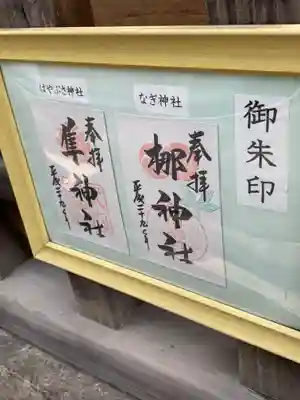 御朱印
なぎ神社
奉拝
梛神社
平成二十九年
はやぶさ神社
奉拝
隼神社
平成二十九年